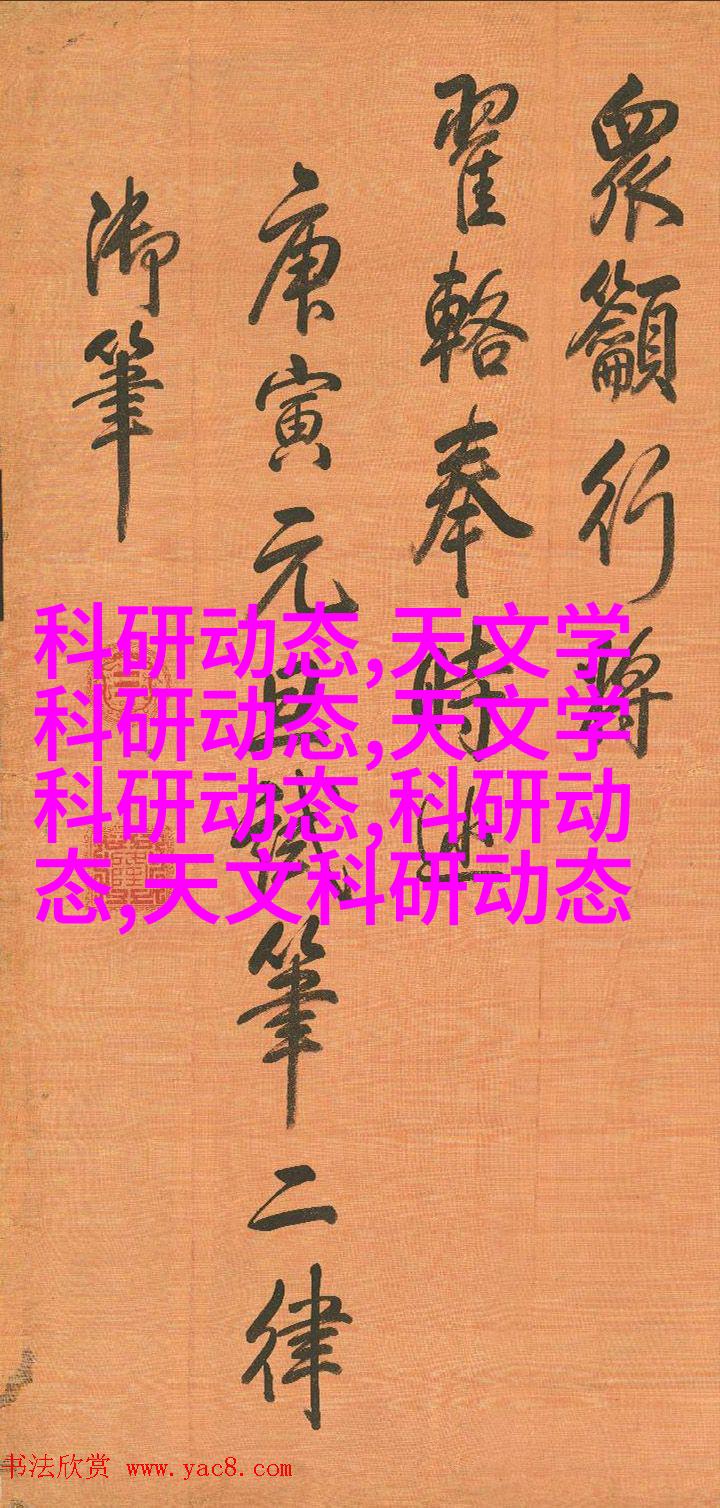 眾籲行將
翟輅奉時巡
庚寅元旦試筆二律
御筆
科研动态,天文学
科研动态,天文学
科研动态,科研动
态,天文科研动态
书法欣赏 www.yac8.com